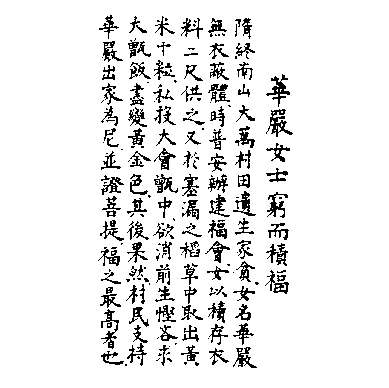 華嚴女士窮而積福
隋終南山大萬村田遺生家貧女名華嚴
無衣蔽體時普安辦建福會女以積存衣
料二尺供之又於塞漏之稻草中取出黃
米十粒私投大會甑中欲消前生慳吝求
大甑飯盡變黃金色其後果然村民支持
華嚴出家為尼並證菩提福之最高者也